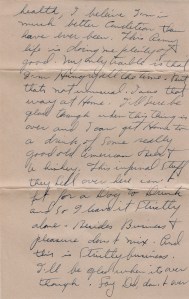 health, I believe I'm in
much better condition than
have ever been. This Army
life is doing me plenty of
good. My only trouble is that
I'm Hungry all the time. But
that's not unusual. I was that
way at Home. I'll sure be
glad though when this thing is
over and I can get Home to
a drink of some really
good old American
whiskey. This stuff
they sell over here isn't
fit for a Dog to Drink
and so I leave it strictly
alone. Besides Business &
pleasure don't mix. And
this is strictly business.
I'll be glad when its over
though. Say Dad, don't ever